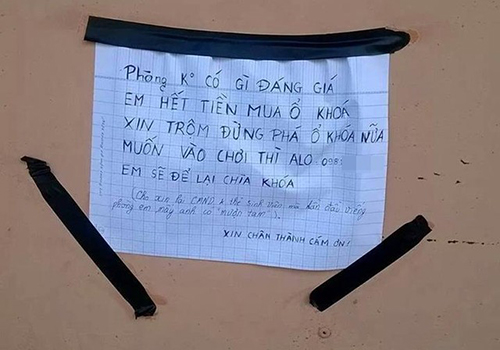 Phòng K° CÓ GÌ ĐÁNG GIÁ
EM HẾT TIỀN MUA Ổ KHOÁ
XIN TRỘM ĐỪNG PHÁ Ổ KHÓA NỮA
MUỐN VÀO CHƠI THÌ ALO 098
EM SẼ ĐỂ LẠI CHÌA KHÓA
(Cho xin lại CMND, thẻ sinh viên, mà lần đầu viếng
phòng em này anh có "mượn tạm").
XIN CHÂN THÀNH CẢM ƠN!